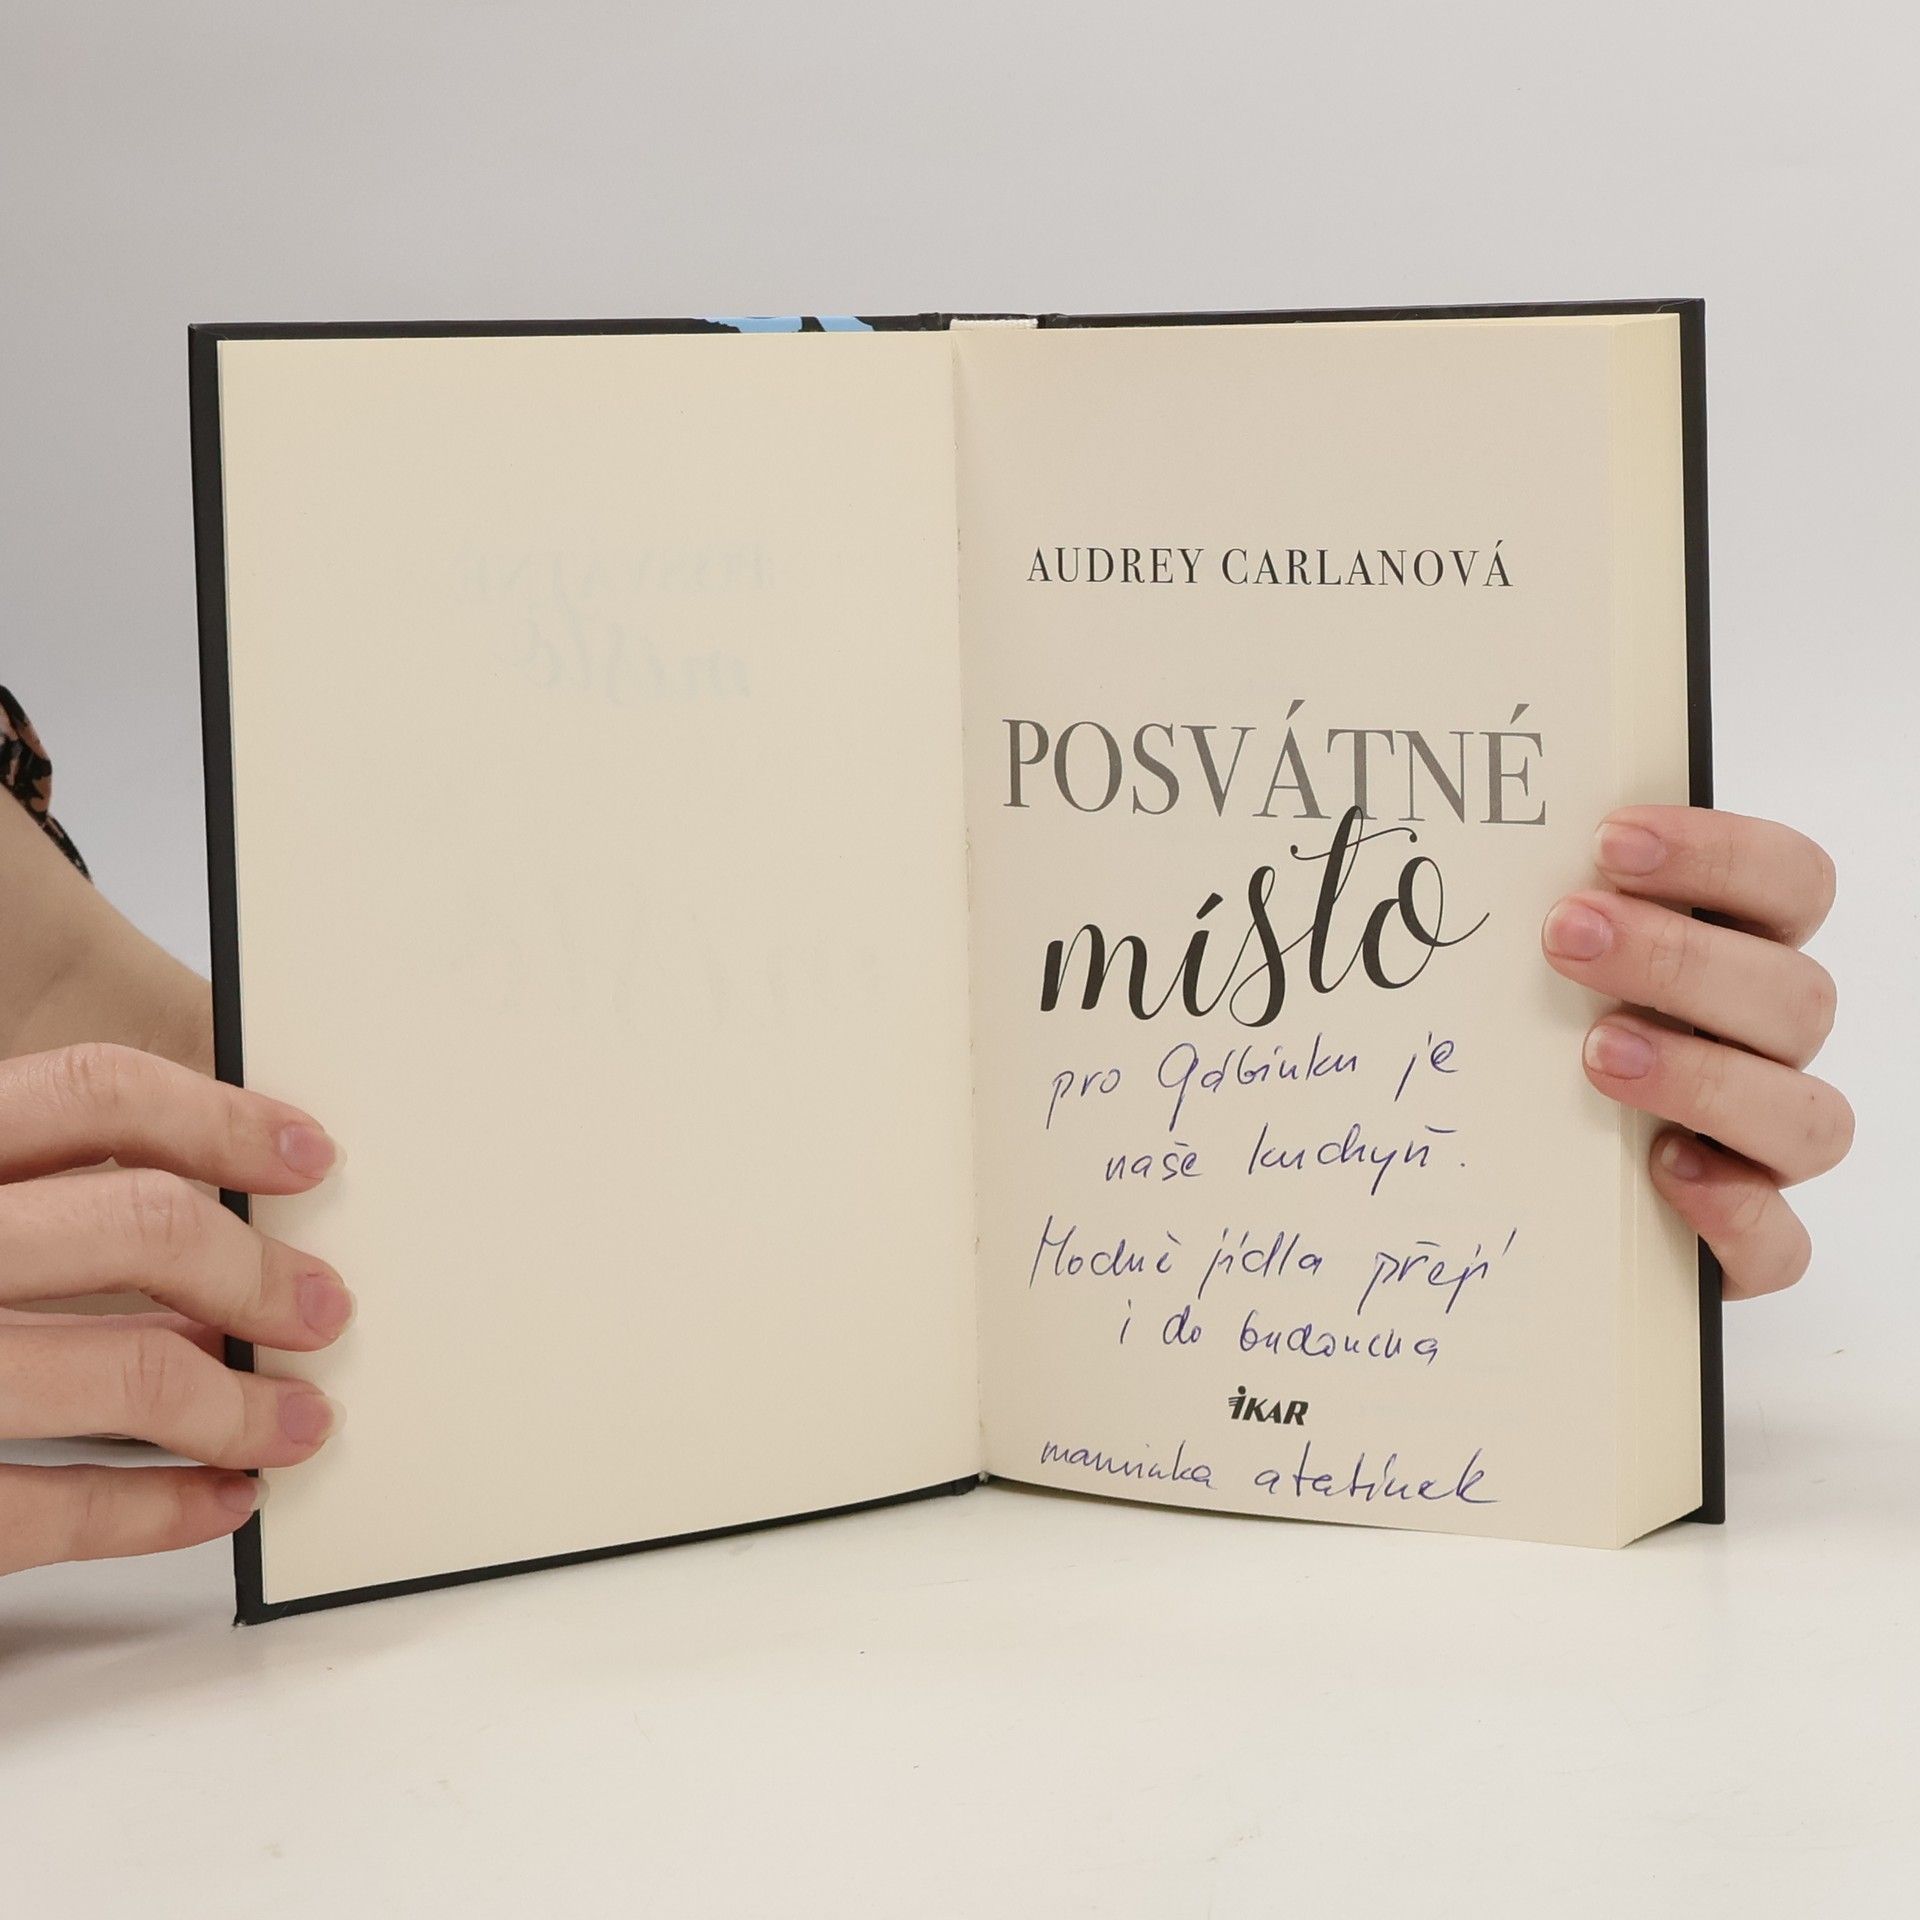 AUDREY CARLANOVÁ
POSVÁTNÉ
místo
pro Gábinku je
naše kuchyň.
Hodně jídla přejí
i do budoucna
IKAR
maminka a tatínek